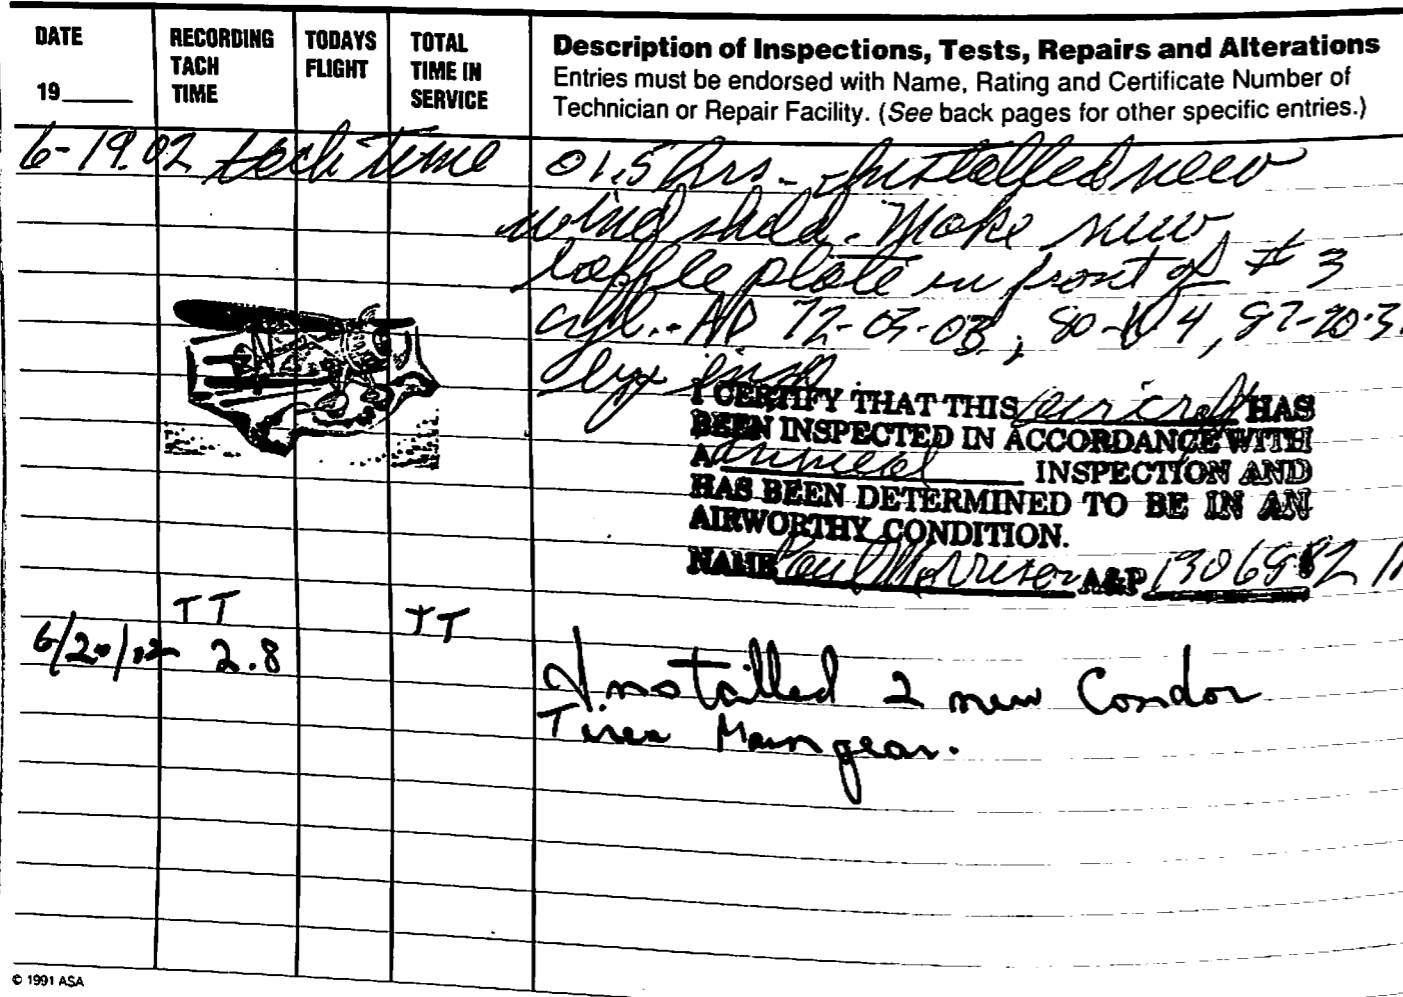 DATE
19____
RECORDING TACH TIME
TODAYS FLIGHT
TOTAL TIME IN SERVICE
Description of Inspections, Tests, Repairs and Alterations
Entries must be endorsed with Name, Rating and Certificate Number of
Technician or Repair Facility. (See back pages for other specific entries.)
6-19-02 tech time 01.5 hrs. - Installed new
wind sheld. Make new
baffle plate in front of # 3
cyl. - AD 72-03-03, 87-20-3
by insp.
I CERTIFY THAT THIS aircraft HAS
BEEN INSPECTED IN ACCORDANCE WITH
A annual INSPECTION AND
HAS BEEN DETERMINED TO BE IN AN
AIRWORTHY CONDITION.
NAME Paul Morrison A&P 1306982
TT TT
6/20/02 2.8 Installed 2 new Condor
Tires Main gear.
© 1991 ASA